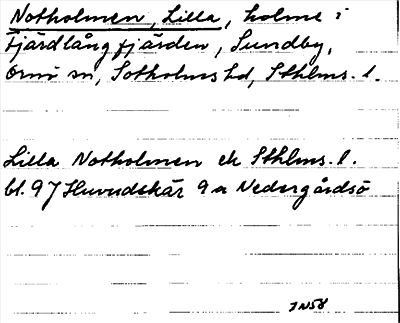 Notholmen, Lilla, holme i
Fjärdlångfjärden, Sundby,
Ornö sn, Sotholms hd, Sthlms. l.
Lilla Notholmen ek Sthlms. l.
bl. 97 Huvudskär 9 a Nedergårdsö
JN58